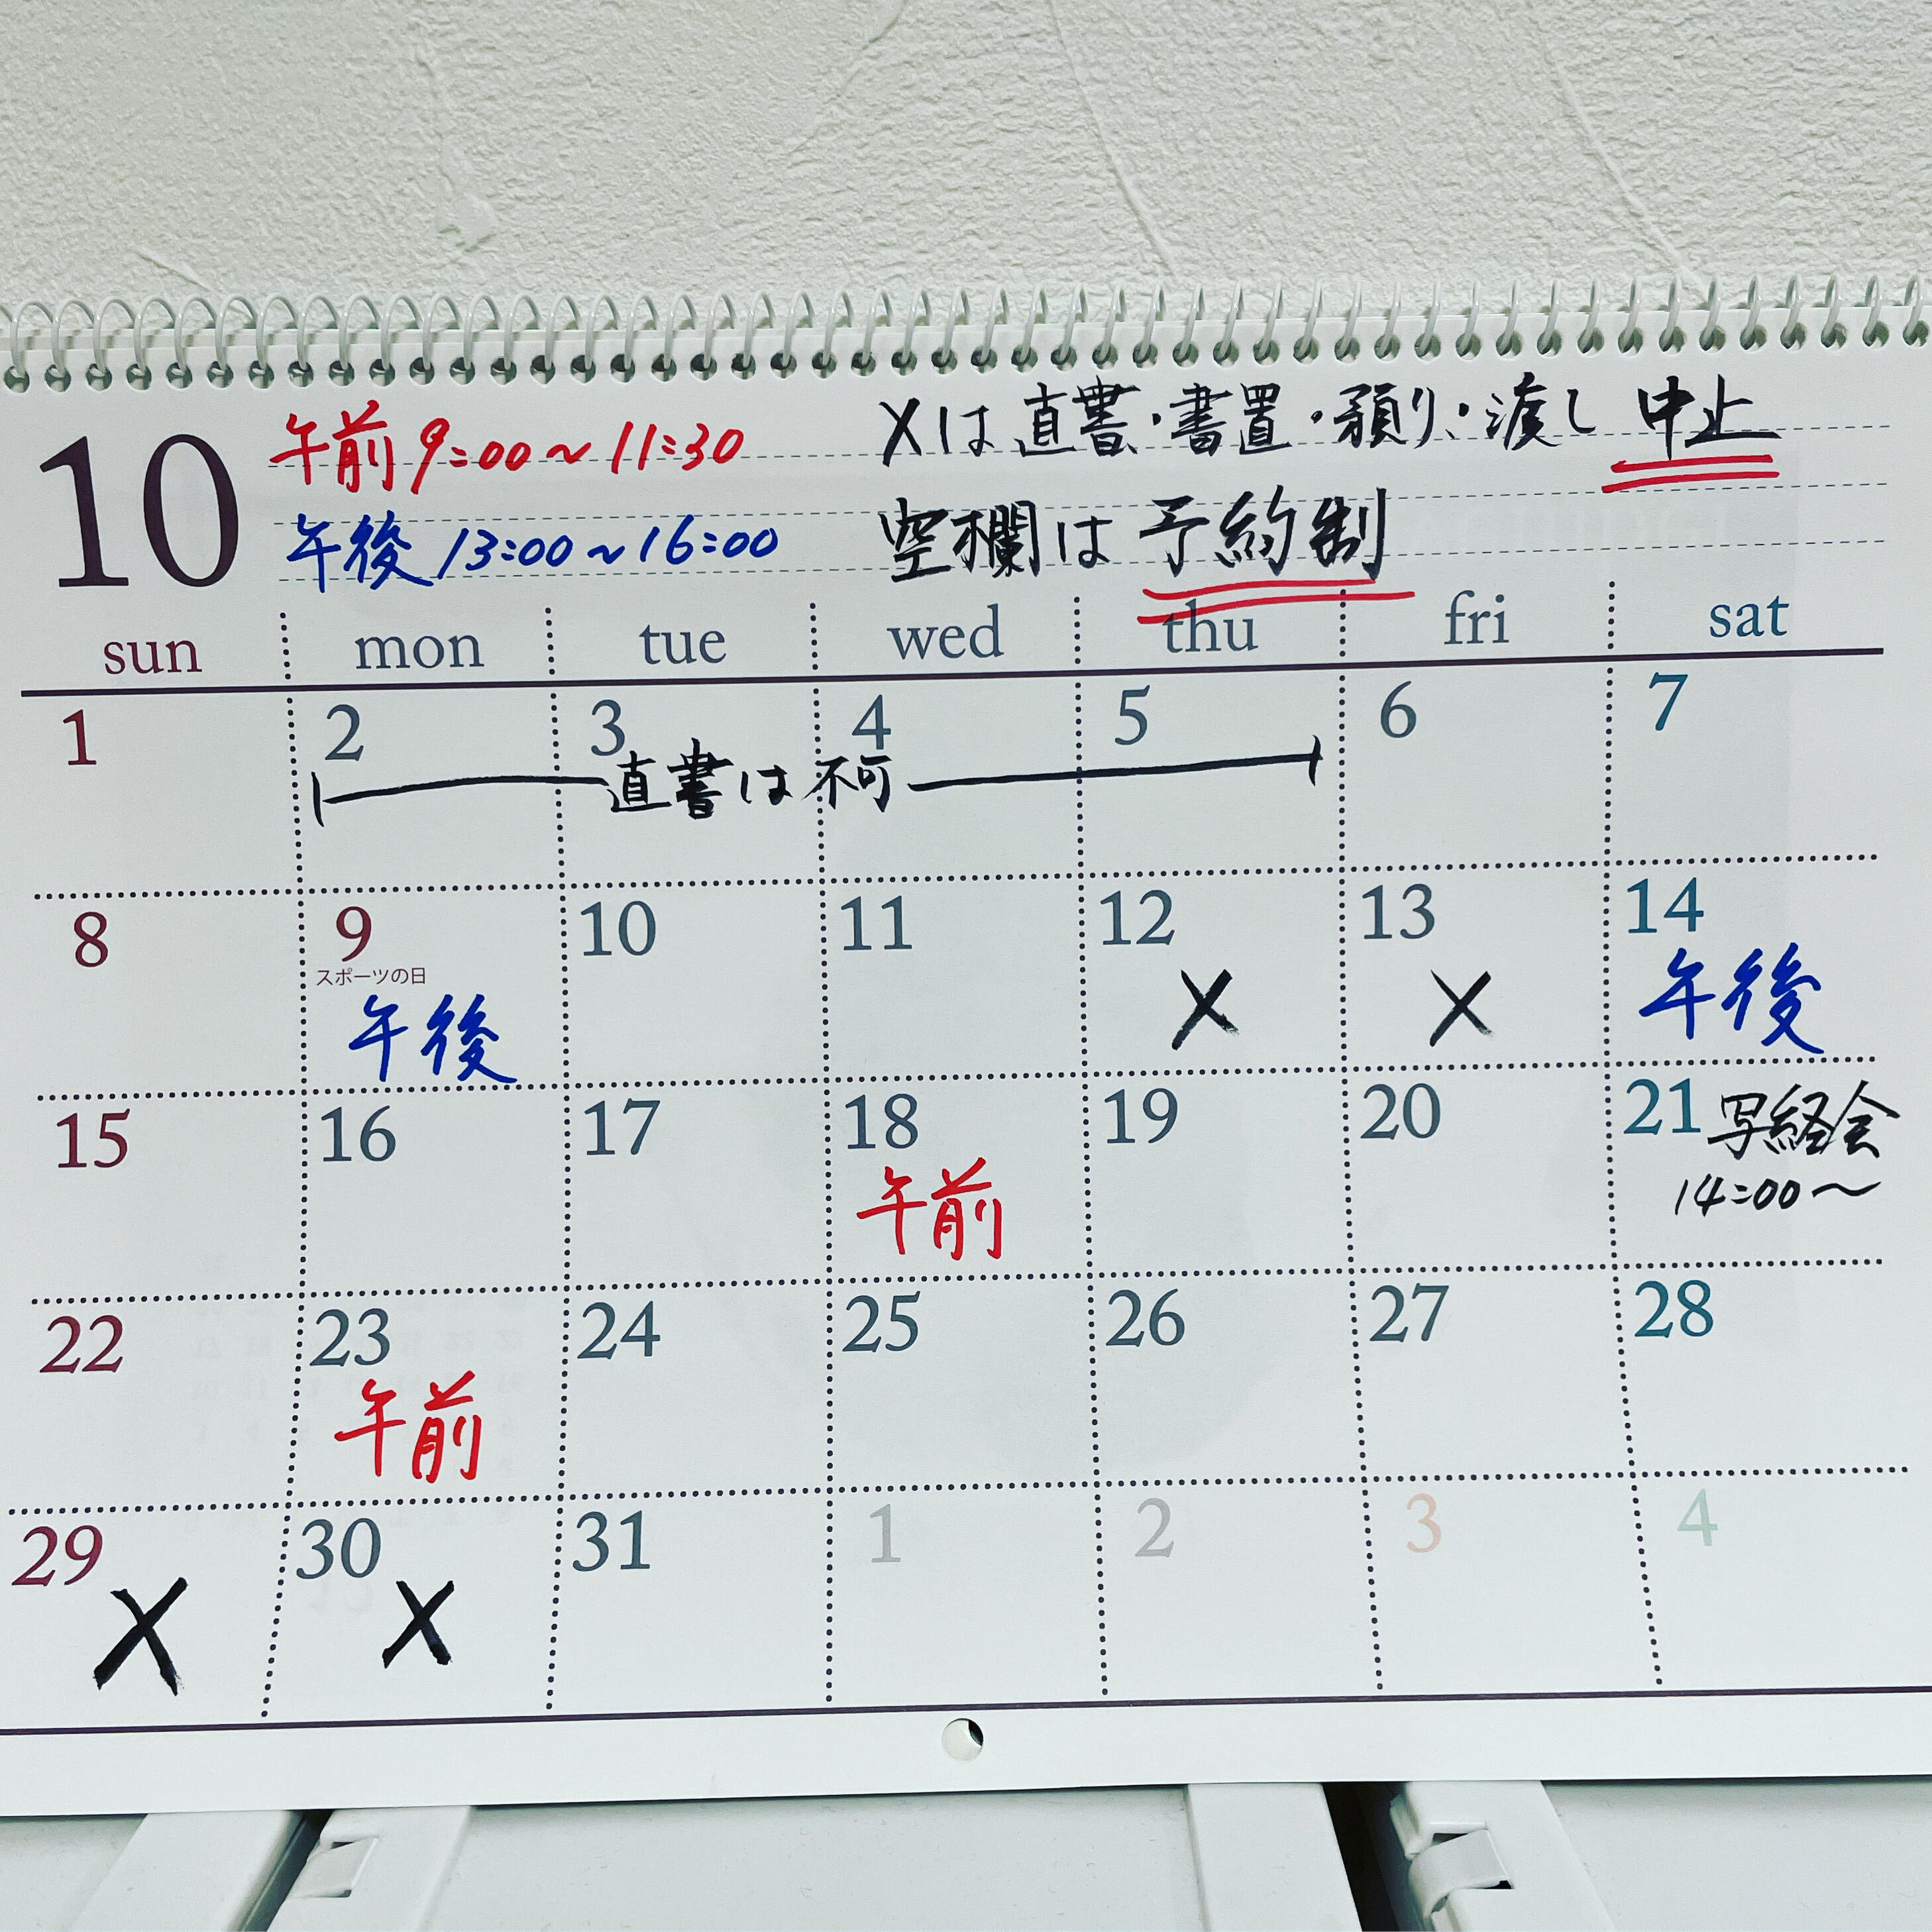 10
午前 9:00～11:30
午後 13:00～16:00
Xは直書・書置・預り・渡し 中止
空欄は予約制
sun mon tue wed thu fri sat
1 2 3 4 5 6 7
直書は不可
8 9 10 11 12 13 14
スポーツの日
午後 X X 午後
15 16 17 18 19 20 21 写経会
午前 14:00～
22 23 24 25 26 27 28
午前
29 30 31 1 2 3 4
X X